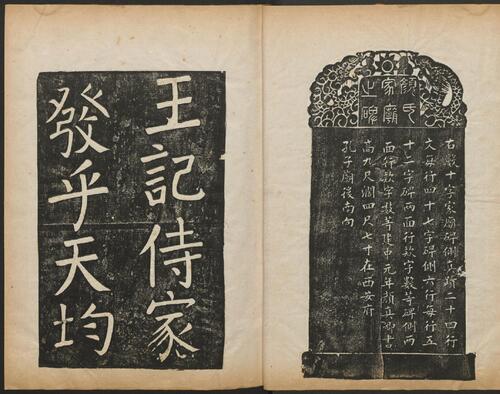 顏氏
家廟
之碑
右數十字家廟碑側真跡二十四行
文每行四十七字碑側六行每行五
十二字碑兩面行款字數等碑側兩
面行款字數等建中元年顏真卿書
高九尺濶四尺七寸在西安府
孔子廟後南向
王記侍家
發乎天均